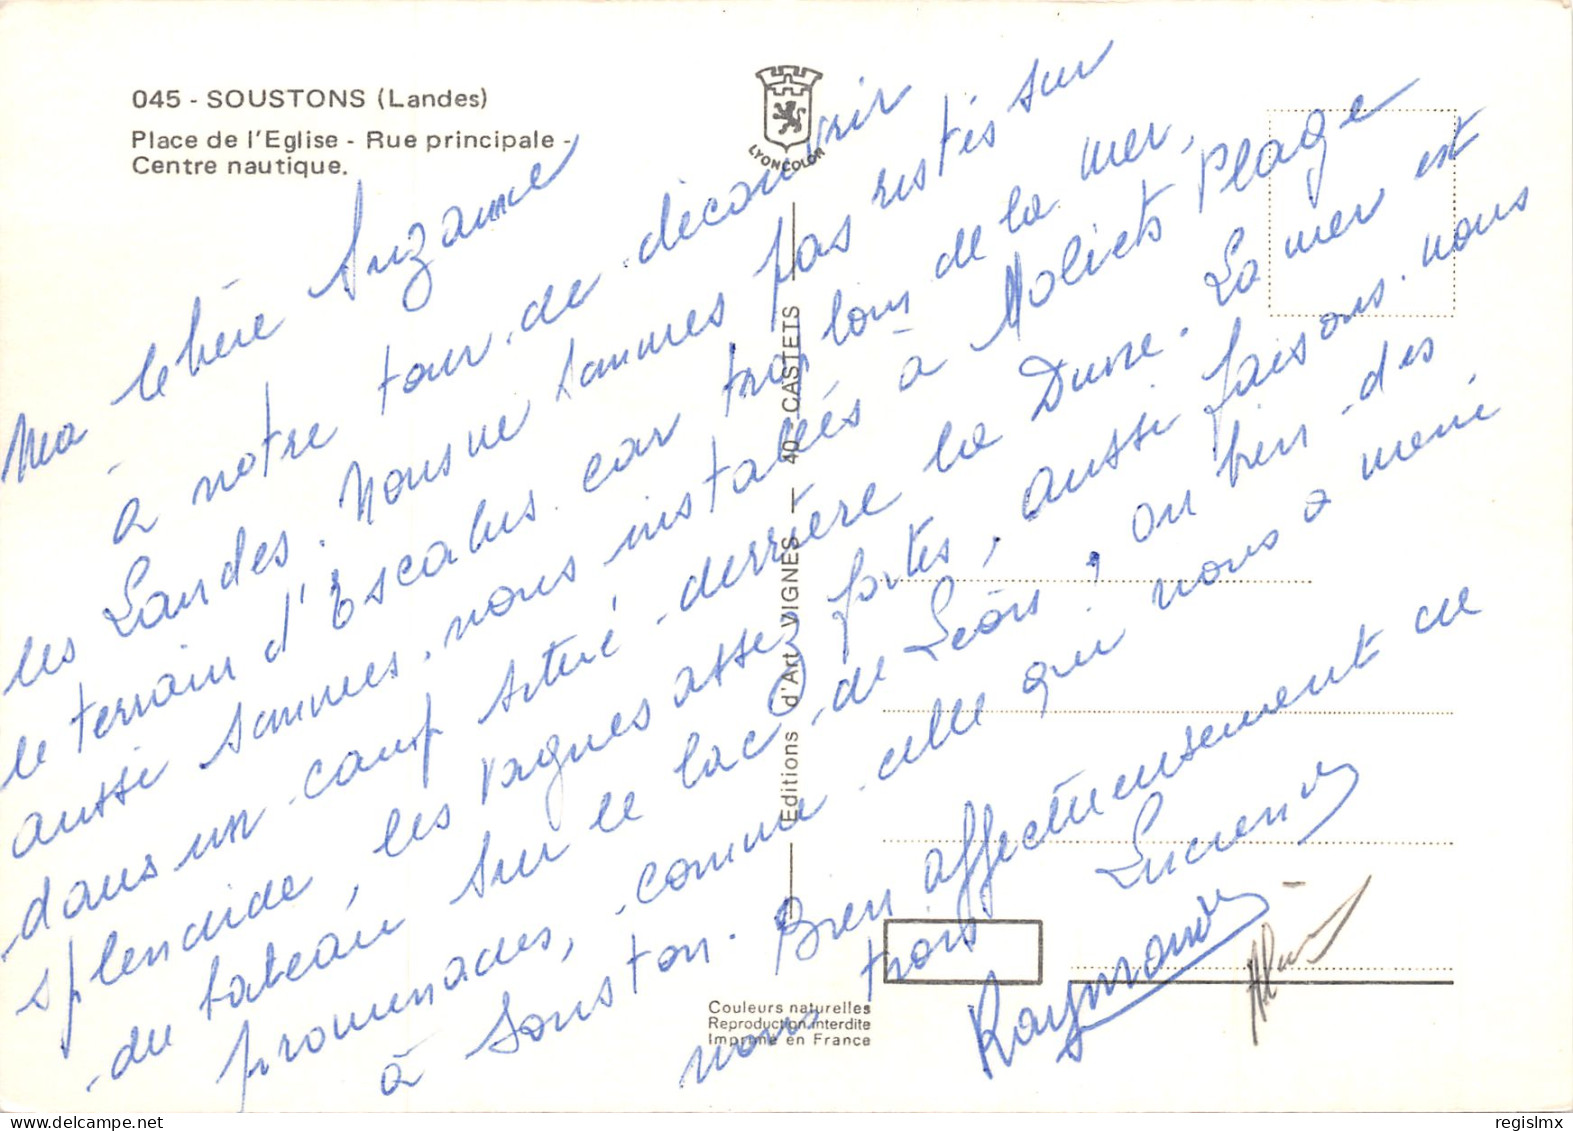 045 - SOUSTONS (Landes)
Place de l'Eglise - Rue principale -
Centre nautique.
LYONCOLOR
Ma chère Suzanne
à notre tour de découvrir
les Landes. Nous ne sommes pas restés sur
le terrain d'Escalus car trop loin de la mer,
aussi sommes nous installés à Moliets Plage
dans un camp situé derrière la Dune. La mer est
splendide, les vagues assez fortes, aussi faisons nous
du bateau sur le lac de Léon ! ou bien des
promenades, comme celle qui nous a mené
à Souston. Bien affectueusement
nous trois
Lucien
Raymonde
Editions d'Art VIGNES — 40 CASTETS
Couleurs naturelles
Reproduction interdite
Imprimé en France
regislmx